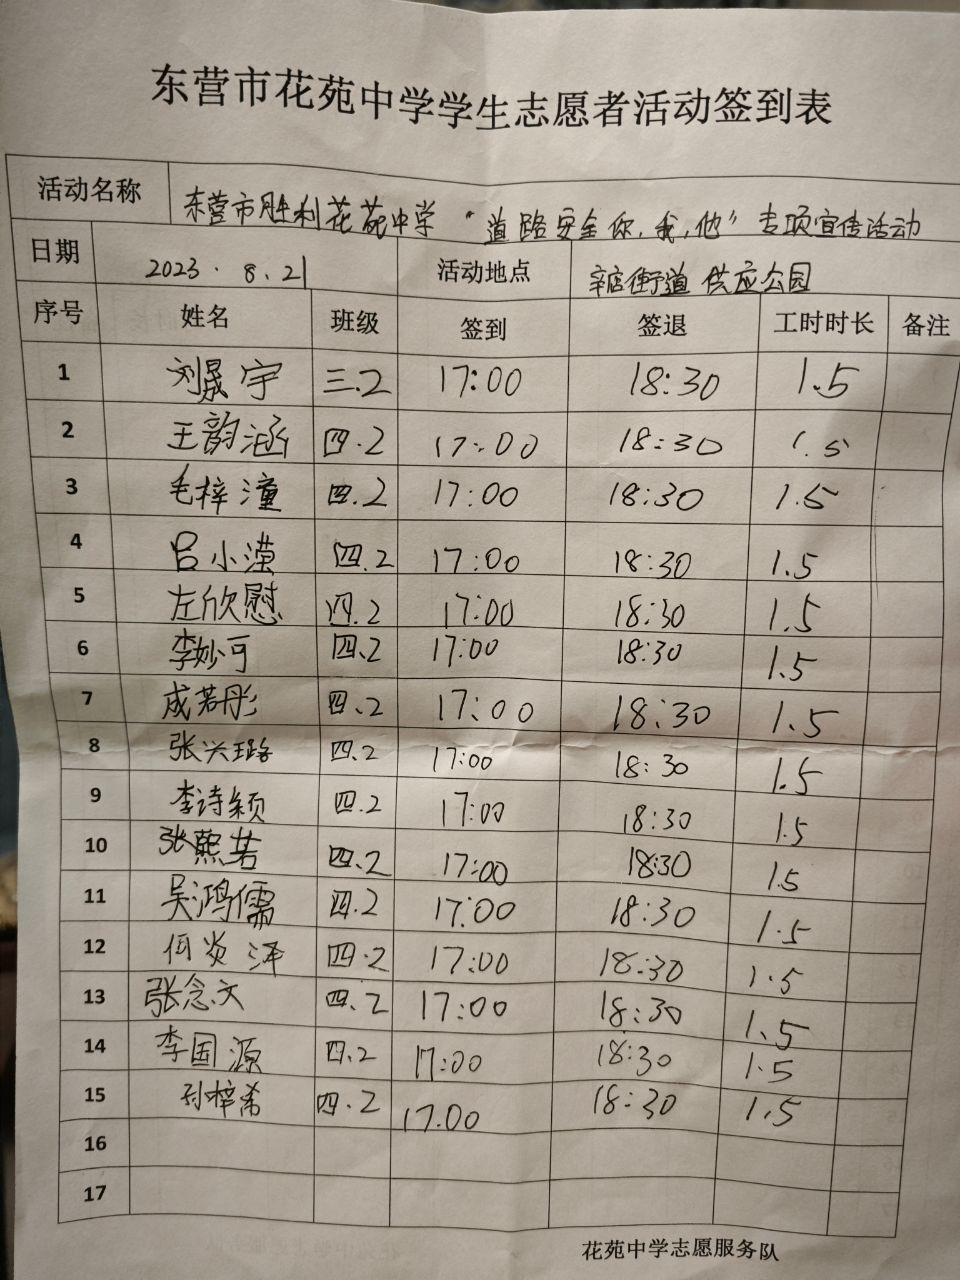 东营市花苑中学学生志愿者活动签到表
活动名称 东营市胜利花苑中学“道路安全你,我,他”专项宣传活动
日期 2023.8.21 活动地点 辛店街道供应公园
序号 姓名 班级 签到 签退 工时时长 备注
1 刘晟宇 三.2 17:00 18:30 1.5
2 王韵涵 四.2 17:00 18:30 1.5
3 毛梓潼 四.2 17:00 18:30 1.5
4 吕小滢 四.2 17:00 18:30 1.5
5 左欣慰 四.2 17:00 18:30 1.5
6 李妙可 四.2 17:00 18:30 1.5
7 成若彤 四.2 17:00 18:30 1.5
8 张兴璐 四.2 17:00 18:30 1.5
9 李诗颖 四.2 17:00 18:30 1.5
10 张熙若 四.2 17:00 18:30 1.5
11 吴鸿儒 四.2 17:00 18:30 1.5
12 何炎泽 四.2 17:00 18:30 1.5
13 张念文 四.2 17:00 18:30 1.5
14 李国源 四.2 17:00 18:30 1.5
15 孙梓希 四.2 17.00 18:30 1.5
16
17
花苑中学志愿服务队